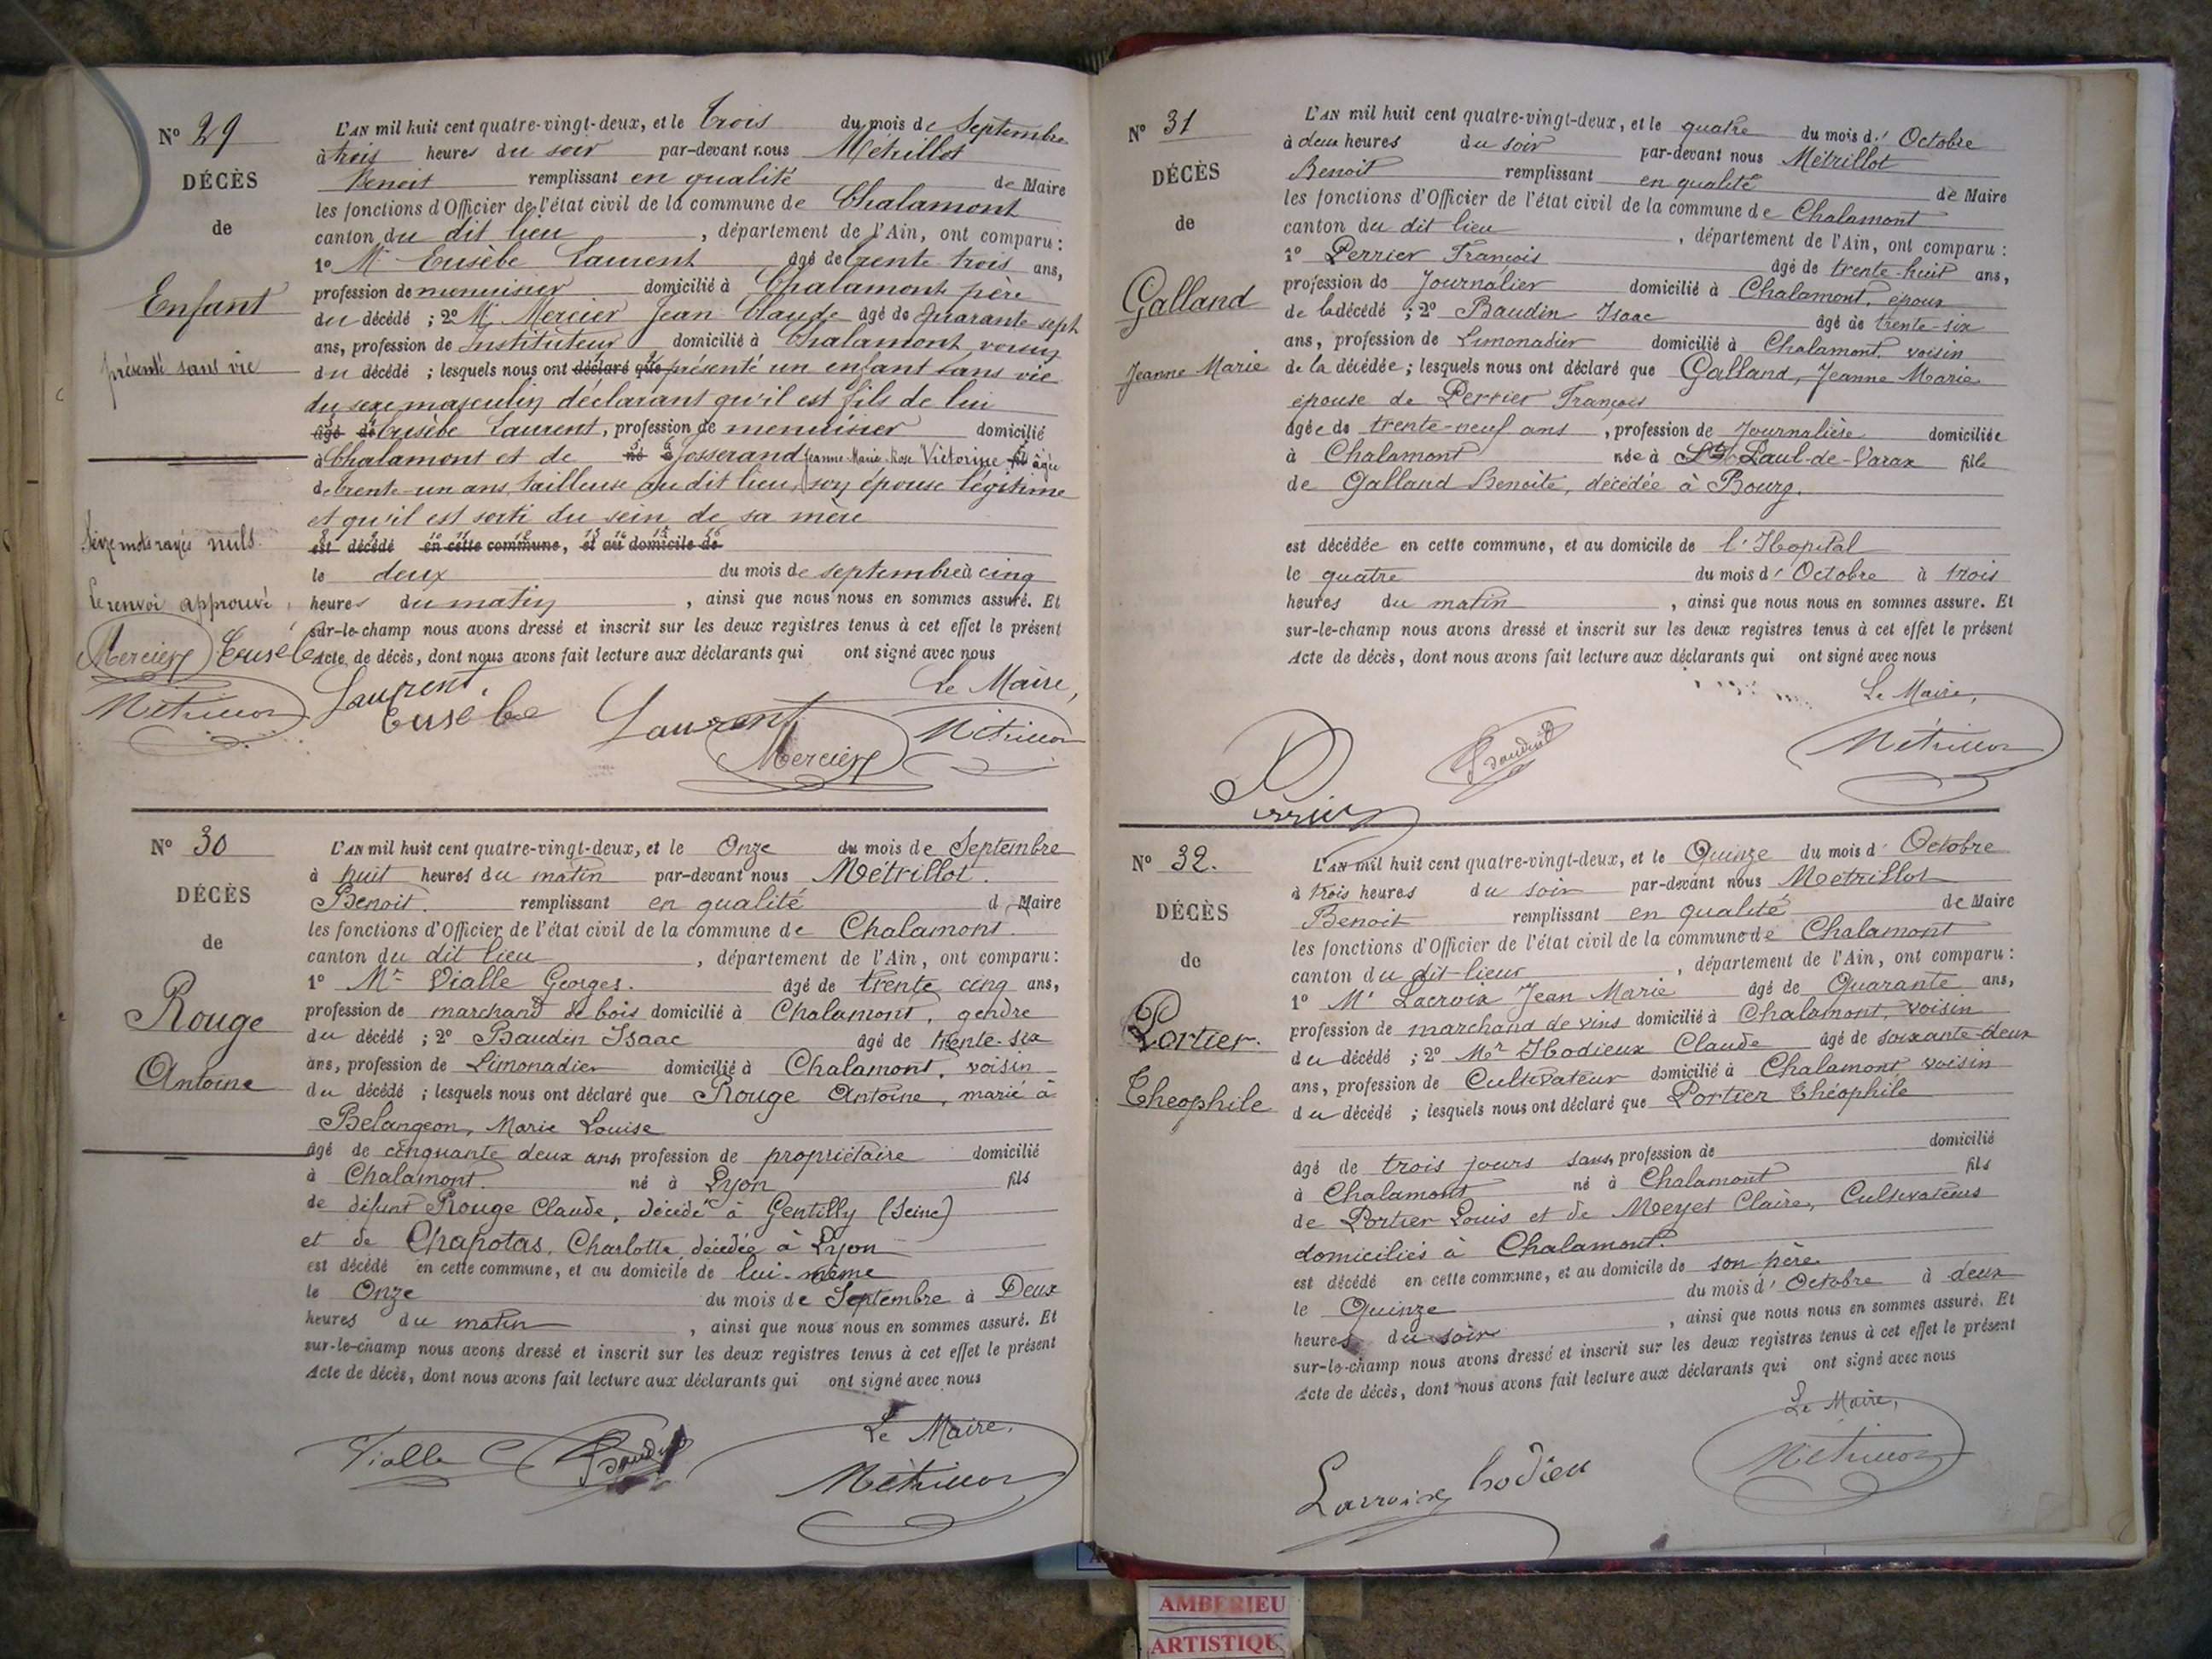 N° 29
DÉCÈS
de
Enfant
présenté sans vie
Seize mots rayés nuls.
Le renvoi approuvé
Mercier Eusèbe
Laurent
Métrillot
L'AN mil huit cent quatre-vingt-deux, et le trois du mois de Septembre
à trois heures du soir par-devant nous Métrillot
Benoit remplissant en qualité de Maire
les fonctions d'Officier de l'état civil de la commune de Chalamont
canton du dit lieu, département de l'Ain, ont comparu :
1° Mr Eusèbe Laurent âgé de trente trois ans,
profession de menuisier domicilié à Chalamont père
du décédé ; 2° Mr Mercier Jean Claude âgé de quarante sept
ans, profession de Instituteur domicilié à Chalamont, voisin
du décédé ; lesquels nous ont déclaré que présenté un enfant sans vie
du sexe masculin déclarant qu'il est fils de lui
âgé de Eusèbe Laurent, profession de menuisier domicilié
à Chalamont et de né à Josserand Jeanne Marie Rose Victorine fils âgée
de trente-un ans, tailleuse au dit lieu, son épouse légitime
et qu'il est sorti du sein de sa mère
est décédé en cette commune, et au domicile de
le deux du mois de septembre à cinq
heures du matin, ainsi que nous nous en sommes assuré. Et
sur-le-champ nous avons dressé et inscrit sur les deux registres tenus à cet effet le présent
Acte de décès, dont nous avons fait lecture aux déclarants qui ont signé avec nous
Le Maire,
Eusèbe Laurent
Mercier
Métrillot
N° 30
DÉCÈS
de
Rouge
Antoine
L'AN mil huit cent quatre-vingt-deux, et le Onze du mois de Septembre
à huit heures du matin par-devant nous Métrillot.
Benoit. remplissant en qualité d Maire
les fonctions d'Officier de l'état civil de la commune de Chalamont.
canton du dit lieu, département de l'Ain, ont comparu :
1° Mr Vialle Georges. âgé de trente cinq ans,
profession de marchand de bois domicilié à Chalamont, gendre
du décédé ; 2° Baudin Isaac âgé de trente-six
ans, profession de Limonadier domicilié à Chalamont, voisin
du décédé ; lesquels nous ont déclaré que Rouge Antoine, marié à
Belangeon, Marie Louise
âgé de cinquante deux ans, profession de propriétaire domicilié
à Chalamont. né à Lyon fils
de défunt Rouge Claude, décédé à Gentilly (Seine)
et de Chapotas, Charlotte décédée à Lyon
est décédé en cette commune, et au domicile de lui-même
le Onze du mois de Septembre à Deux
heures du matin, ainsi que nous nous en sommes assuré. Et
sur-le-champ nous avons dressé et inscrit sur les deux registres tenus à cet effet le présent
Acte de décès, dont nous avons fait lecture aux déclarants qui ont signé avec nous
Le Maire,
Vialle G Baudin
Métrillot
N° 31
DÉCÈS
de
Galland
Jeanne Marie
L'AN mil huit cent quatre-vingt-deux, et le quatre du mois d' Octobre
à deux heures du soir par-devant nous Métrillot
Benoit remplissant en qualité de Maire
les fonctions d'Officier de l'état civil de la commune de Chalamont
canton du dit lieu, département de l'Ain, ont comparu :
1° Perrier François âgé de trente-huit ans,
profession de Journalier domicilié à Chalamont, époux
de la décédé ; 2° Baudin Isaac âgé de trente-six
ans, profession de Limonadier domicilié à Chalamont, voisin
de la décédée ; lesquels nous ont déclaré que Galland, Jeanne Marie
épouse de Perrier François
âgée de trente-neuf ans, profession de Journalière domiciliée
à Chalamont née à St Paul-de-Varax fille
de Galland Benoite, décédée à Bourg.
est décédée en cette commune, et au domicile de l'Hopital
le quatre du mois d' Octobre à trois
heures du matin, ainsi que nous nous en sommes assuré. Et
sur-le-champ nous avons dressé et inscrit sur les deux registres tenus à cet effet le présent
Acte de décès, dont nous avons fait lecture aux déclarants qui ont signé avec nous
Le Maire,
Perrier
Baudin
Métrillot
N° 32.
DÉCÈS
de
Portier.
Théophile
L'AN mil huit cent quatre-vingt-deux, et le Quinze du mois d' Octobre
à trois heures du soir par-devant nous Métrillot
Benoit remplissant en qualité de Maire
les fonctions d'Officier de l'état civil de la commune de Chalamont
canton du dit-lieu, département de l'Ain, ont comparu :
1° Mr Lacroix Jean Marie âgé de Quarante ans,
profession de marchand de vins domicilié à Chalamont, voisin
du décédé ; 2° Mr Hodieux Claude âgé de soixante-deux
ans, profession de Cultivateur domicilié à Chalamont voisin
du décédé ; lesquels nous ont déclaré que Portier Théophile
âgé de trois jours sans, profession de domicilié
à Chalamont né à Chalamont fils
de Portier Louis et de Meyet Claire, Cultivateurs
domiciliés à Chalamont.
est décédé en cette commune, et au domicile de son père
le Quinze du mois d' Octobre à deux
heures du soir, ainsi que nous nous en sommes assuré. Et
sur-le-champ nous avons dressé et inscrit sur les deux registres tenus à cet effet le présent
Acte de décès, dont nous avons fait lecture aux déclarants qui ont signé avec nous
Le Maire,
Lacroix hodieu
Métrillot
AMBERIEU
ARTISTIQU